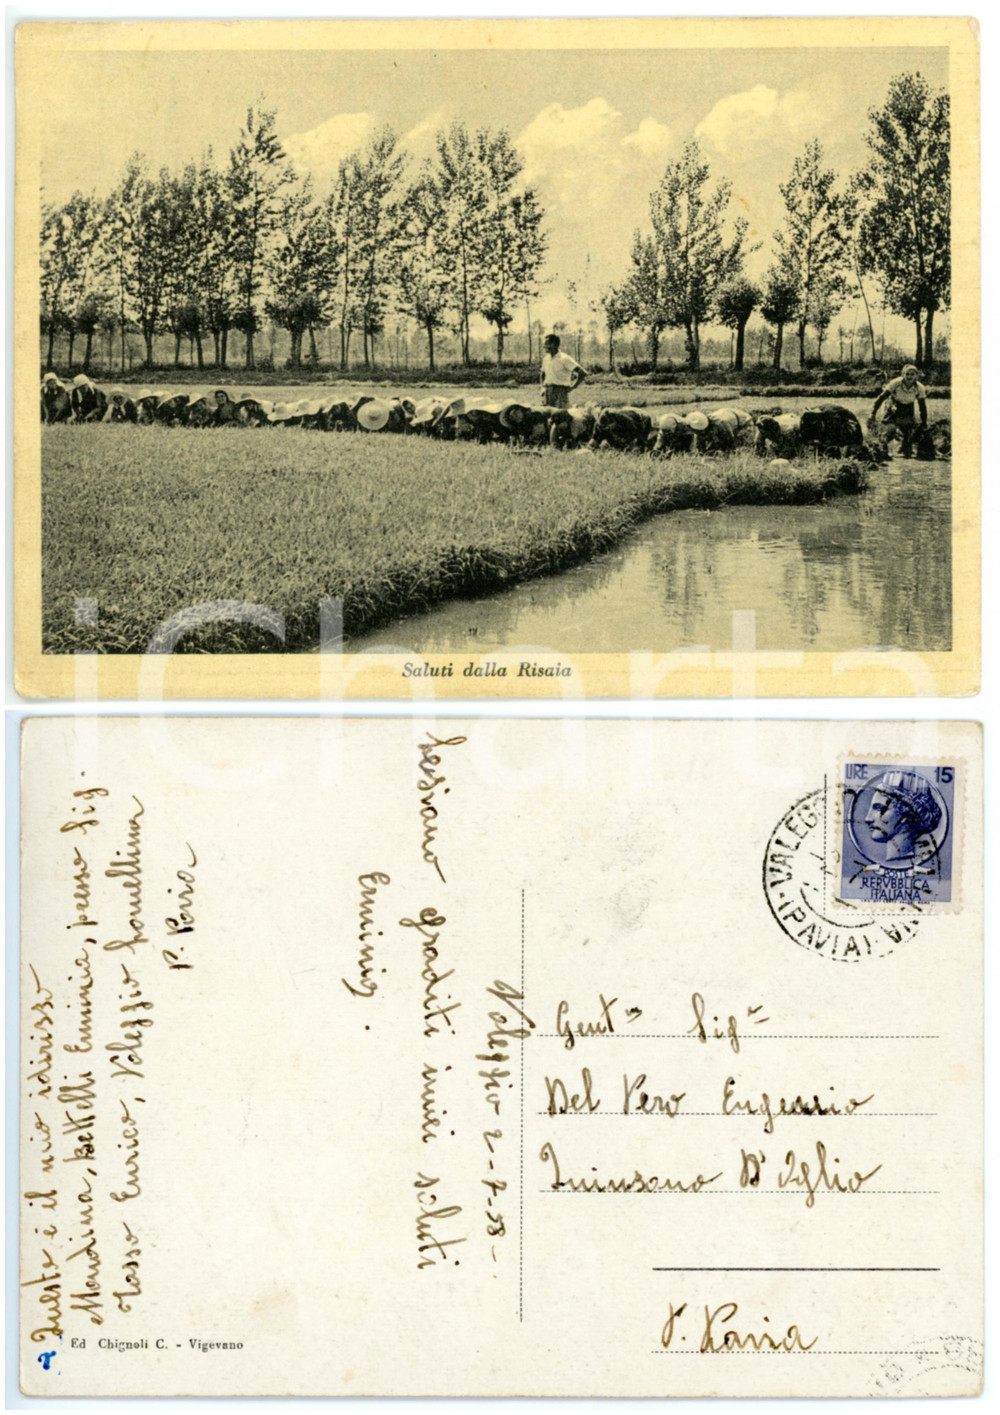 Saluti dalla Risaia
iCharta
LIRE 15
POSTE
REPVBBLICA
ITALIANA
VALEGGIO LOMELLINA
(PAVIA)
Valeggio 2-7-58-
graditi miei saluti
Erminia.
Questo è il mio idirisso
Mondina, Bettelli Erminia, presso Sig.
Tosso Enrico, Valeggio Lomellina
P. Pavia
Gent.m Sig.r
Del Vero Eugenio
D'Oglio
P. Pavia
Ed Chignoli C. - Vigevano